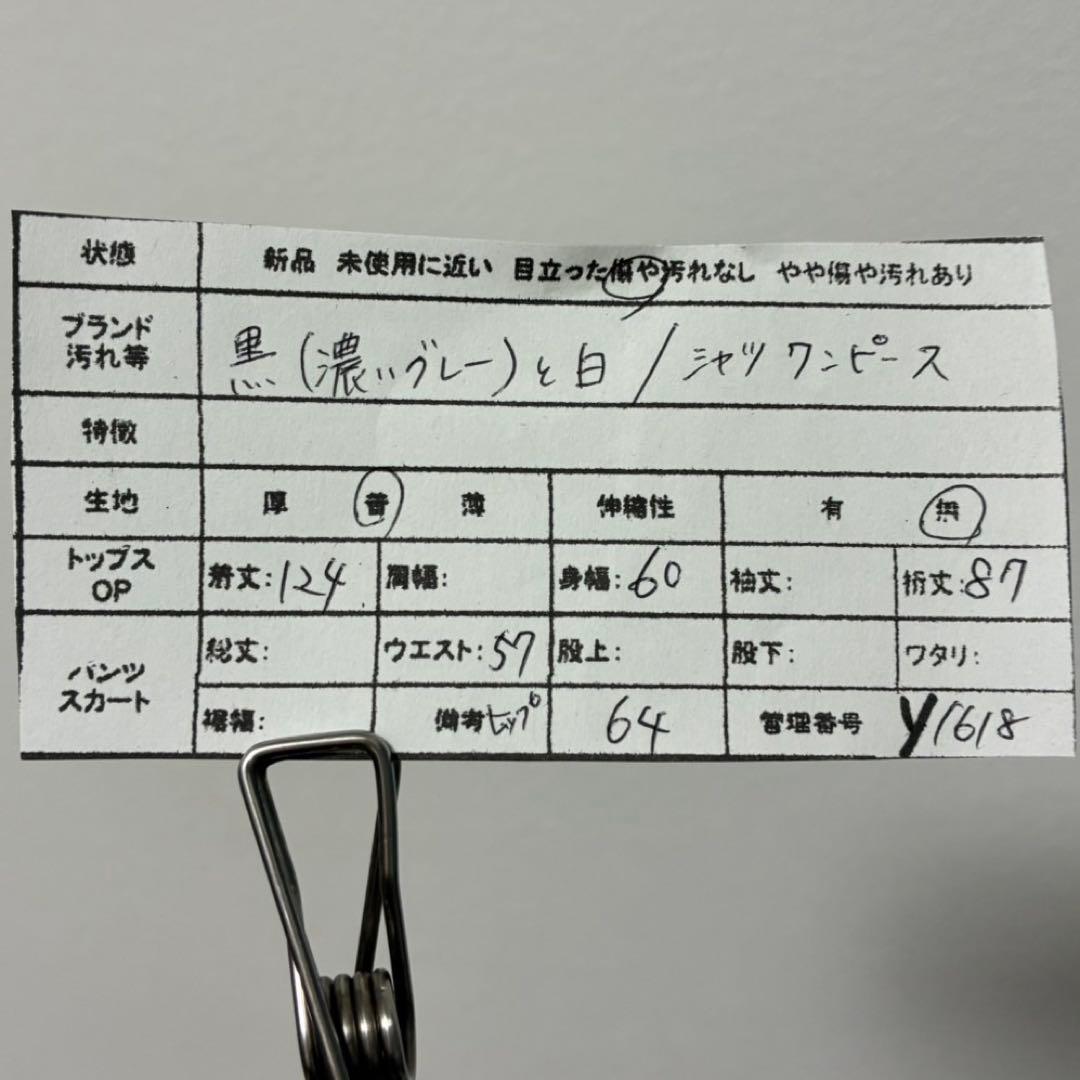 状態 新品 未使用に近い 目立った傷や汚れなし やや傷や汚れあり
ブランド
汚れ等 黒(濃いグレー)と白/シャツワンピース
特徴
生地 厚 普 薄 伸縮性 有 無
トップス
OP 着丈:124 胸幅: 身幅:60 袖丈: 裄丈:87
パンツ
スカート
総丈: ウエスト:57 股上: 股下: ワタリ:
裾幅: 備考 ヒップ 64 管理番号 y1618